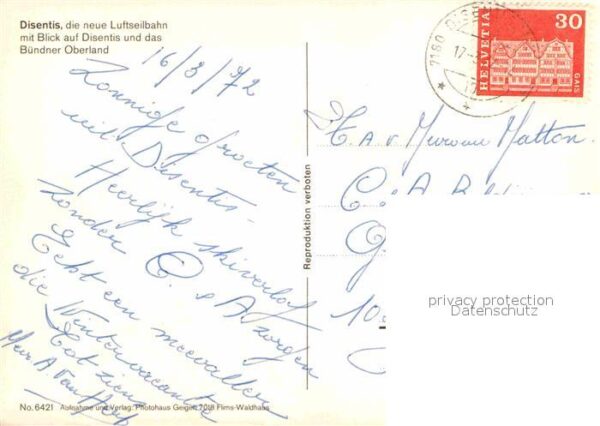 Disentis, die neue Luftseilbahn
mit Blick auf Disentis und das
Bündner Oberland
16/3/72
Zonnige groeten
uit Disentis-
Heerlijk skiverlof
zonder C. & A. zorgen
Hebt een meevallende
die Wintervacantie
Tot ziens
Reproduktion verboten
7180
HELVETIA
30
GAIS
C & A
10
privacy protection
Datenschutz
No. 6421 Aufnahme und Verlag: Photohaus Geiger, 7018 Flims-Waldhaus